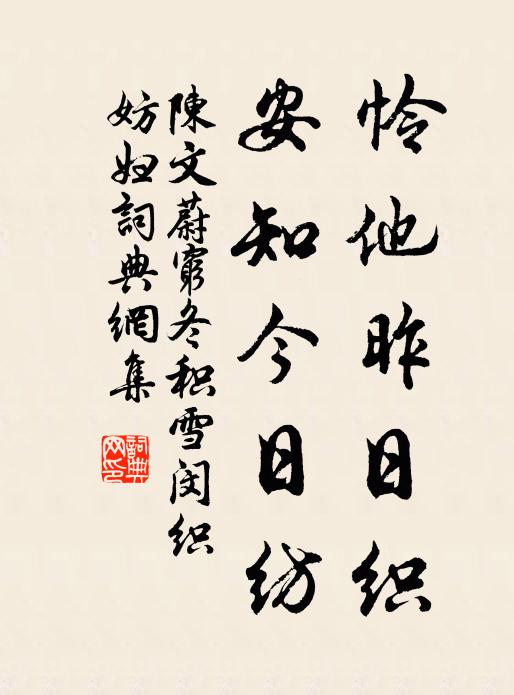 怜他昨日织
安知今日纺
陳文蔚窮冬积雪闵织
妨妲詞典網集
詞典网印